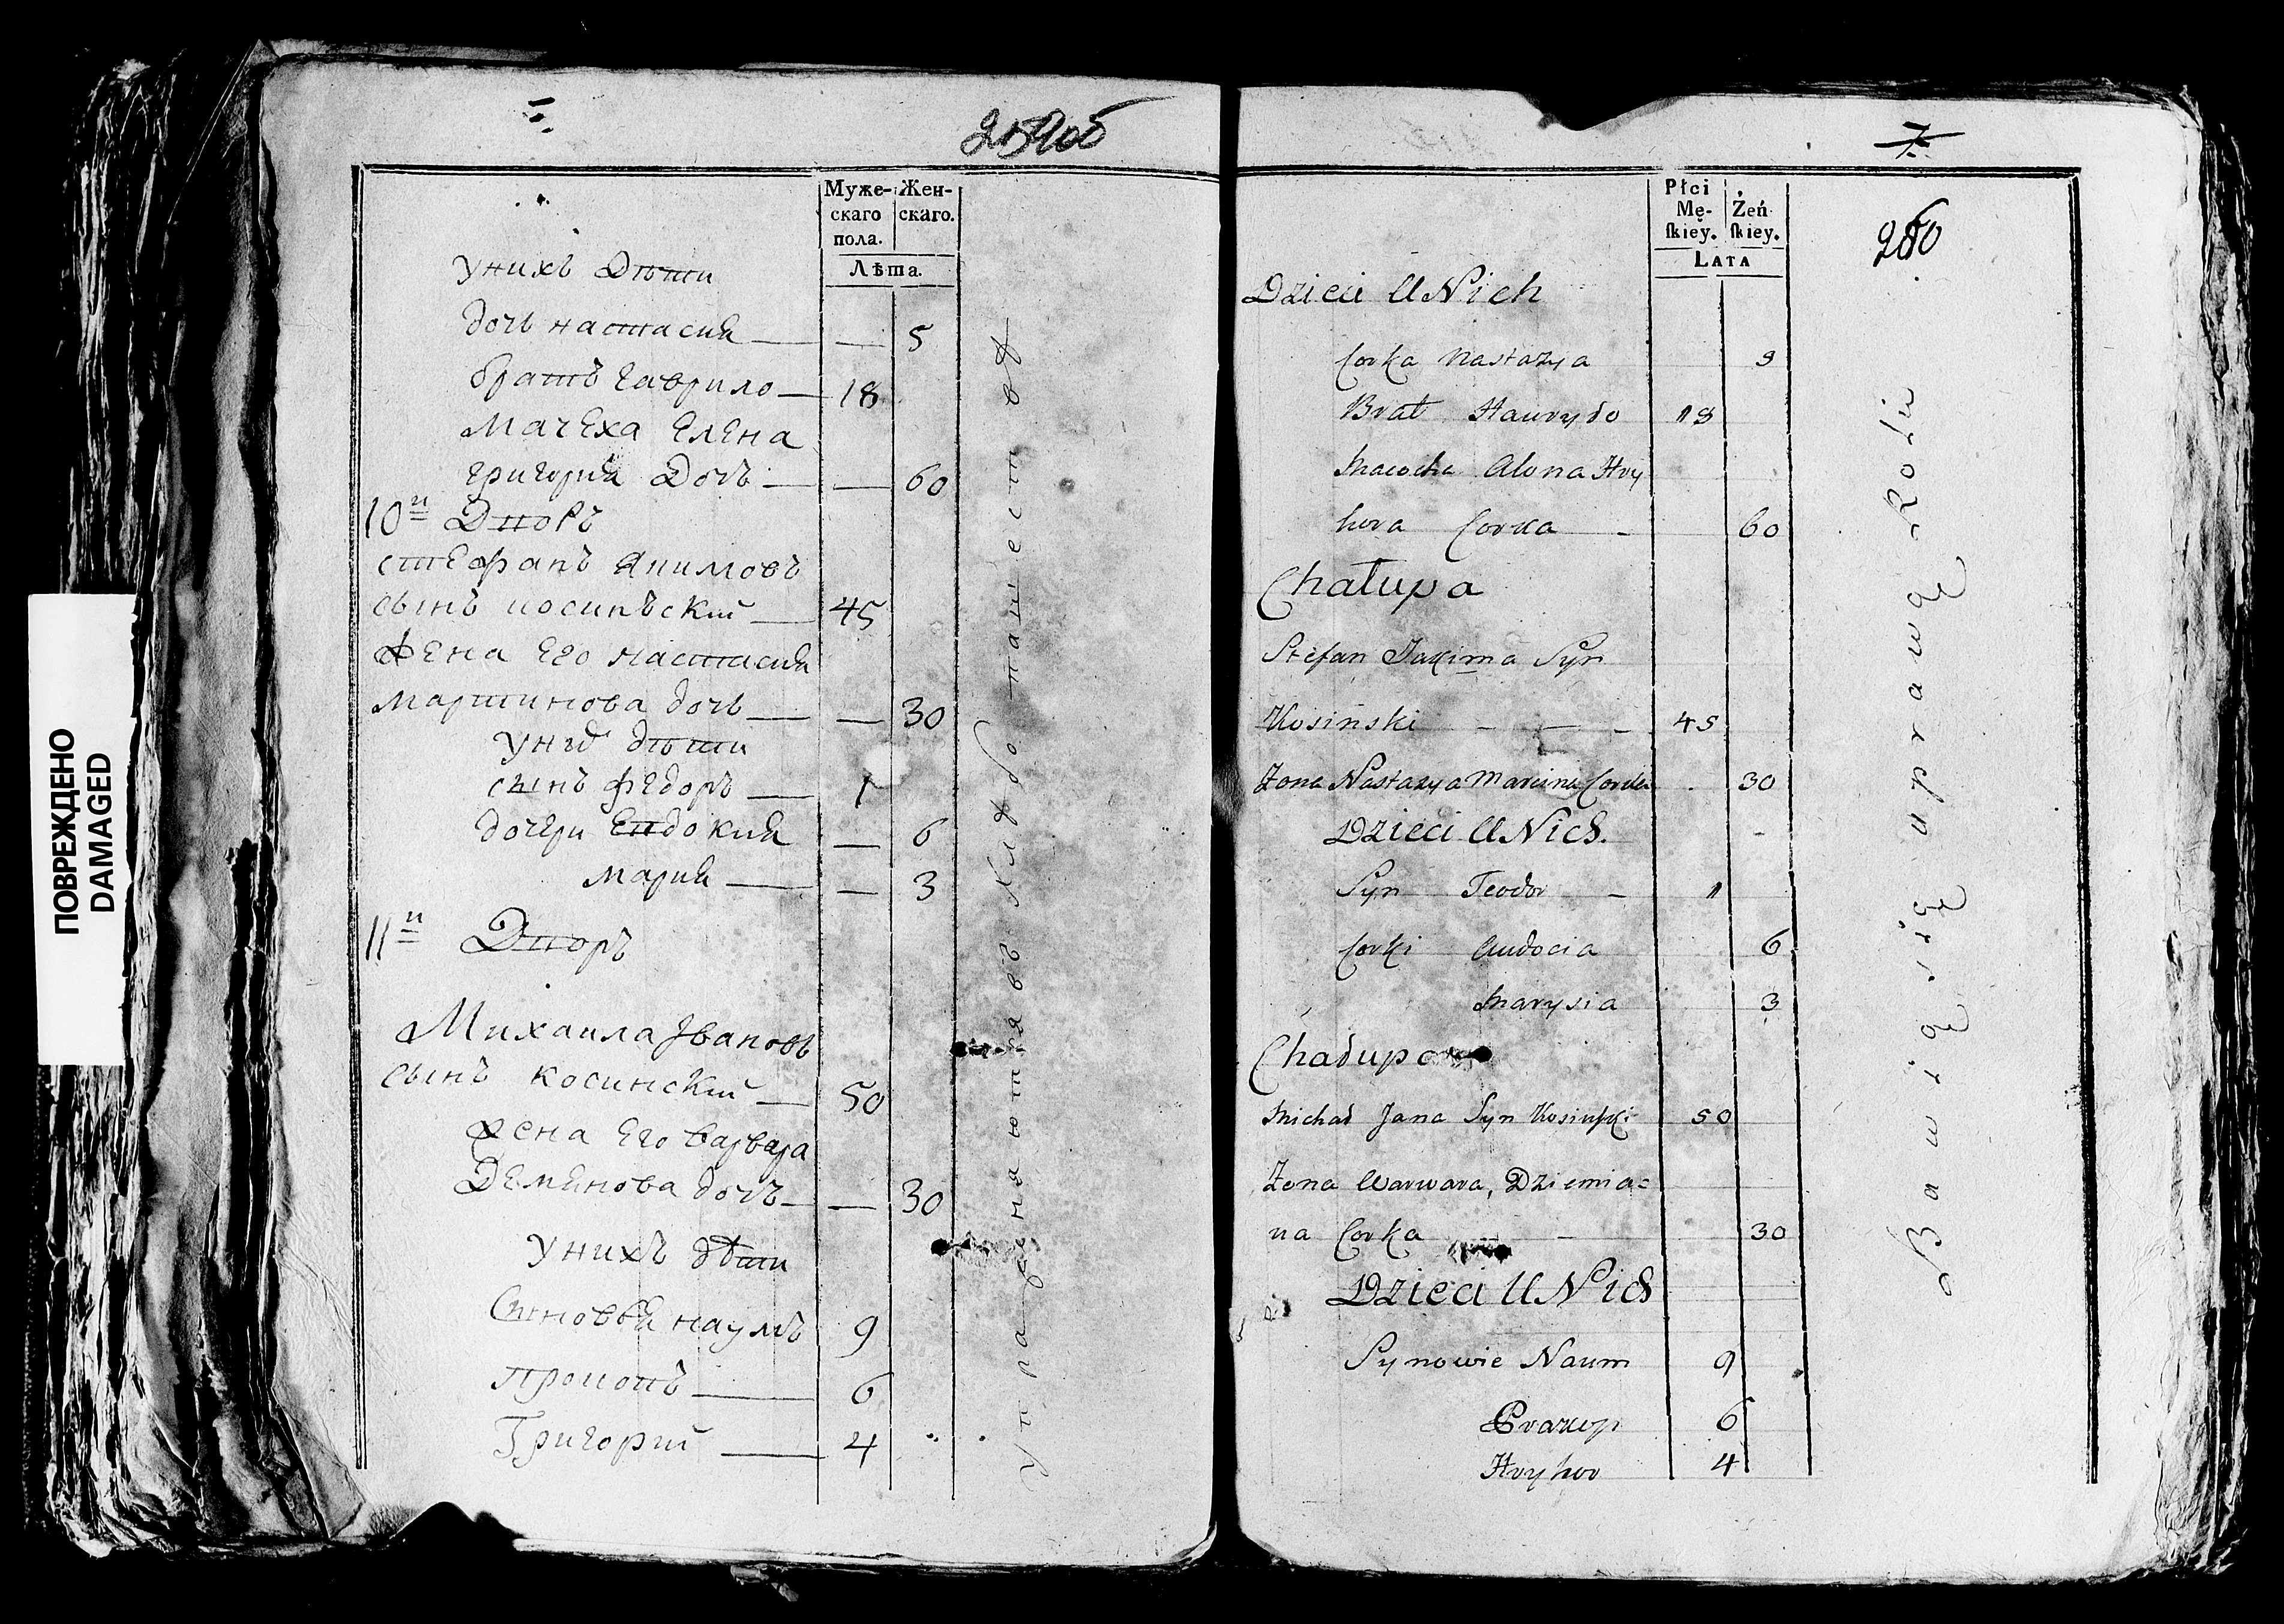 ПОВРЕЖДЕНО
DAMAGED
259об
Муже-
скаго
пола.
Жен-
скаго.
Лѣта.
унихъ Дѣти
дочь настасия — — 5
братъ гаврило — 18
Мачеха Елена
григория Дочь — — 60
10й Дворъ
стефанъ якимовъ
сынъ косинъский — 45
жена Его настасия
мартинова дочь — — 30
уних дѣти
сынъ федоръ — 1
дочери Евдокия — 6
мария — — 3
11й Дворъ
Михаила Ивановъ
сынъ косинский — 50
жена Его варвара
Демянова дочь — — 30
унихъ дѣти
Сыновья наумъ 9
прокопъ — 6
Григорий — 4
упражняются въ хлѣбопашествѣ
7.
260
Płci
Mę-
skiey.
Żeń
skiey.
LATA
Dzieci U Nich
Corka Nastazya 5
Brat Hauryło 18
Macocha Alona Hry
hora Corka - 60
Chałupa
Stefan Jakima Syn
Kosiński - - - 45
Żona Nastazya Marcina Corka . 30
Dzieci U Nich.
Syn Teodor - 1
Corki Audocia 6
Marysia 3
Chałupa
Michał Jana Syn Kosinski 50
Żona Warwara, Dziemia=
na Corka - 30
Dzieci U Nich
Synowie Naum 9
Prakop 6
Hryhor 4
Bawią się uprawą Roli